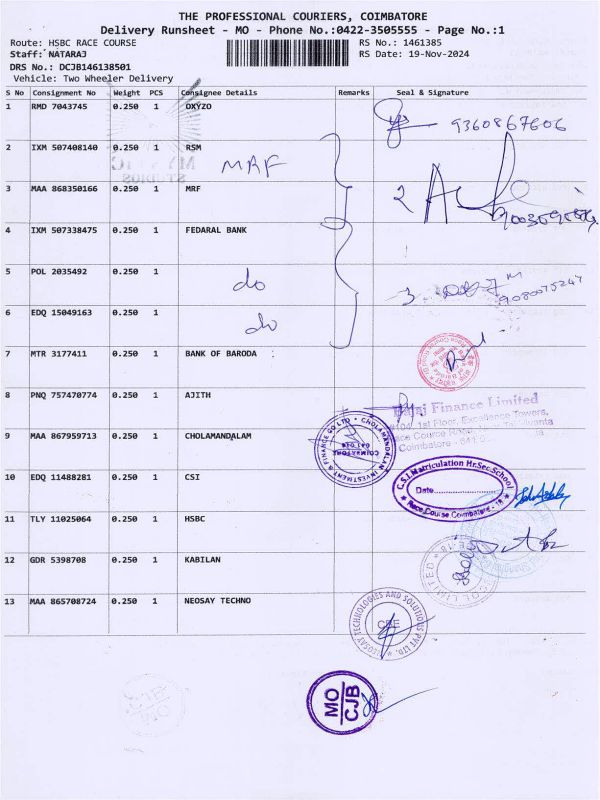 THE PROFESSIONAL COURIERS, COIMBATORE
Delivery Runsheet - MO - Phone No.:0422-3505555 - Page No.:1
Route: HSBC RACE COURSE RS No.: 1461385
Staff: NATARAJ RS Date: 19-Nov-2024
DRS No.: DCJB146138501
Vehicle: Two Wheeler Delivery
S No Consignment No Weight PCS Consignee Details Remarks Seal & Signature
1 RMD 7043745 0.250 1 OXYZO 9360867606
2 IXM 507408140 0.250 1 RSM
MRF
3 MAA 868350166 0.250 1 MRF 2
4 IXM 507338475 0.250 1 FEDARAL BANK
5 POL 2035492 0.250 1 do 3 9080075247
6 EDQ 15049163 0.250 1 do
7 MTR 3177411 0.250 1 BANK OF BARODA
8 PNQ 757470774 0.250 1 AJITH
Bajaj Finance Limited
1st Floor, Excellence Towers,
Race Course
Coimbatore - 641 0
9 MAA 867959713 0.250 1 CHOLAMANDALAM
CHOLAMANDALAM INVESTMENT & FINANCE CO LTD
COIMBATORE
641 018
10 EDQ 11488281 0.250 1 CSI
C.S.I. Matriculation Hr.Sec.School
Date
Race Course Coimbatore - 18
11 TLY 11025064 0.250 1 HSBC
12 GDR 5398708 0.250 1 KABILAN
LIMITED
13 MAA 865708724 0.250 1 NEOSAY TECHNO
NEOSAY TECHNOLOGIES AND SOLUTIONS PVT LTD.
CBE
MO
CJB
CJB
MO